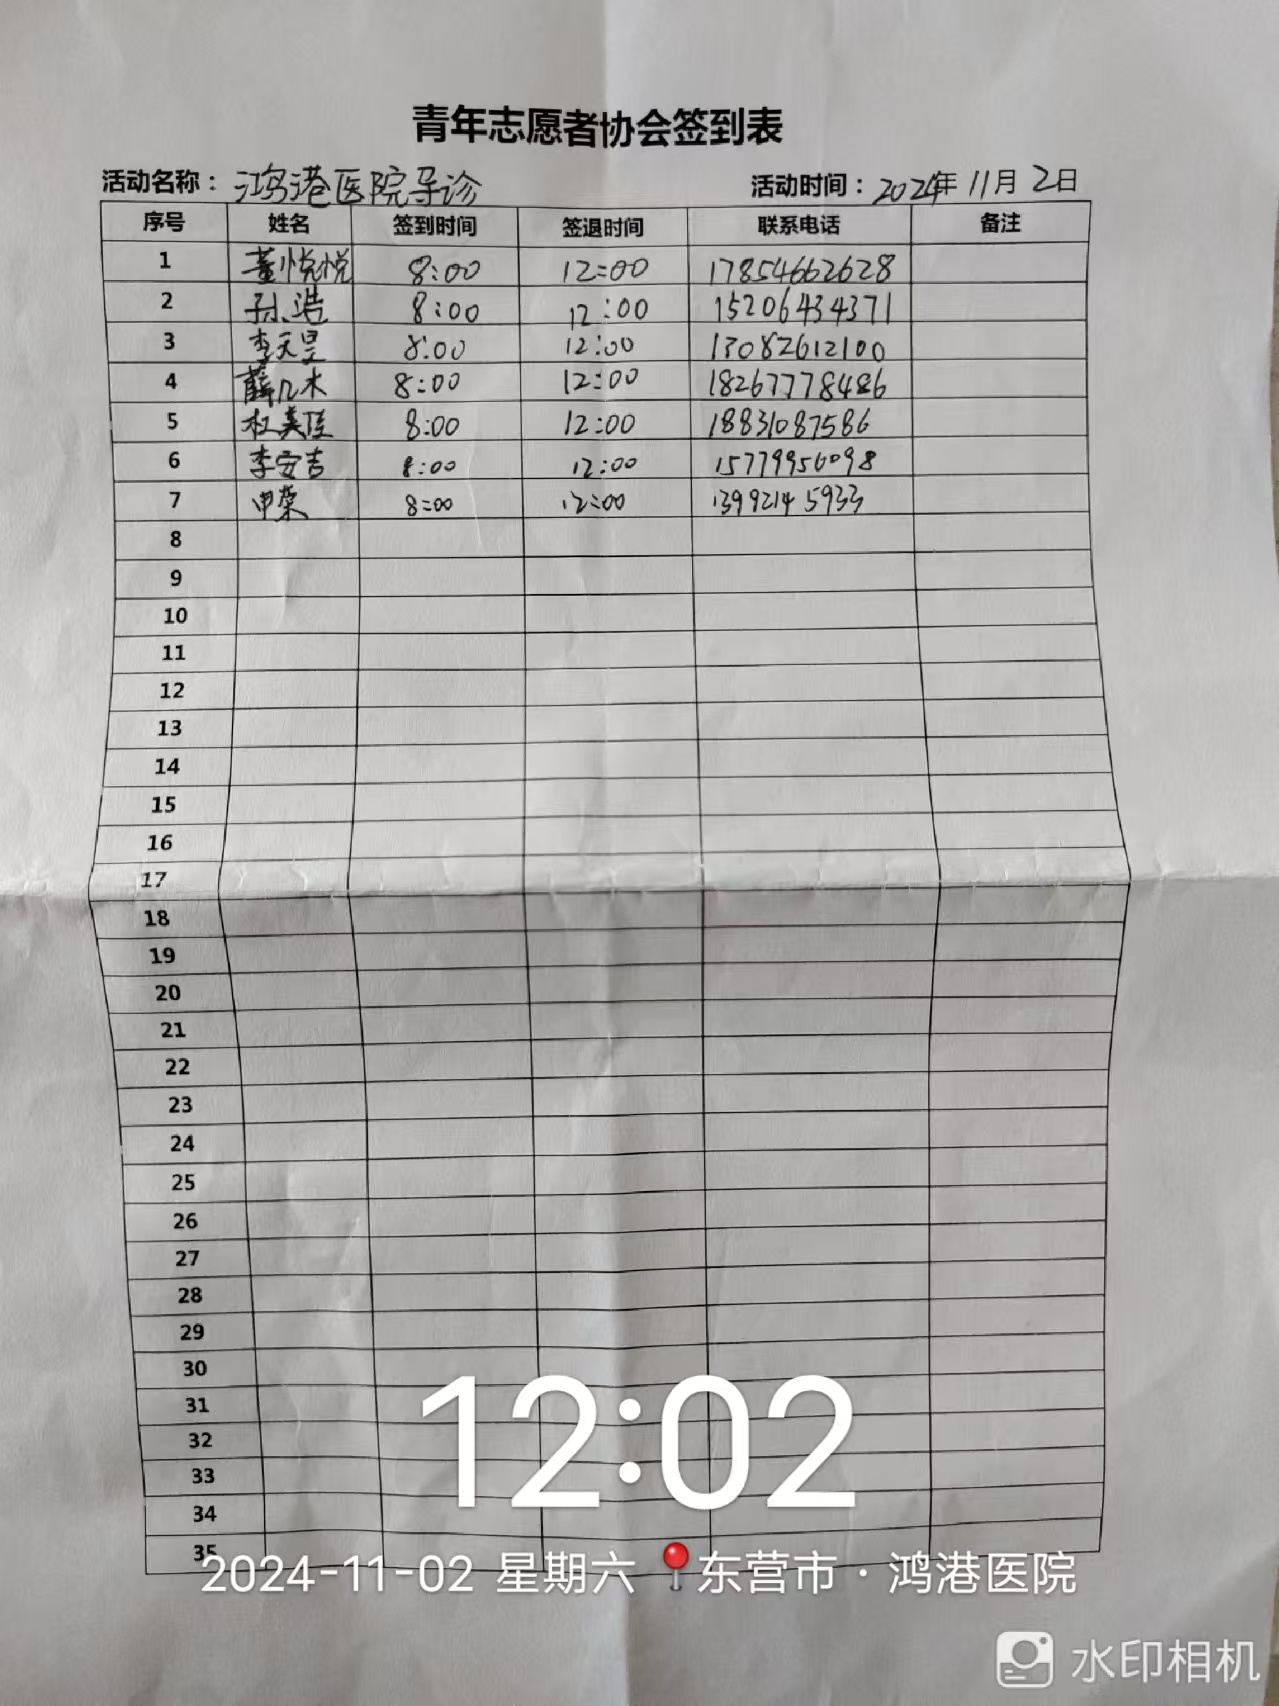 青年志愿者协会签到表
活动名称： 鸿港医院导诊 活动时间： 2024年 11月 2日
序号 姓名 签到时间 签退时间 联系电话 备注
1 董悦悦 8:00 12:00 17854662628
2 孙浩 8:00 12:00 15206434371
3 李天昱 8:00 12:00 13082612100
4 薛几木 8:00 12:00 18267778486
5 杜美佳 8:00 12:00 18831087586
6 李安吉 8:00 12:00 15779956098
7 申荣 8:00 12:00 13992145933
8
9
10
11
12
13
14
15
16
17
18
19
20
21
22
23
24
25
26
27
28
29
30
31
32
33
34
35
12:02
2024-11-02 星期六 东营市·鸿港医院
水印相机